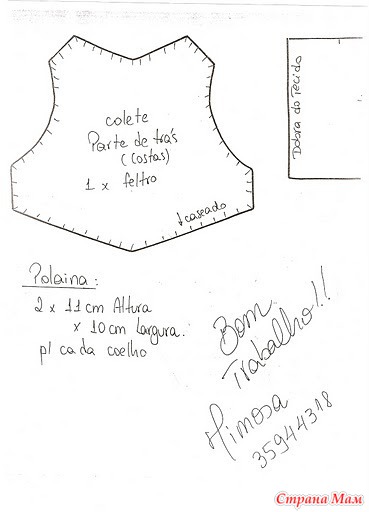 colete
Parte de trás
(costas)
1 x feltro
caseado
Dobra do Tecido
Polaina:
2 x 11 cm Altura
x 10 cm Largura.
p/ cada coelho
Bom
Trabalho!!
Mimosa
35944318
Страна Мам